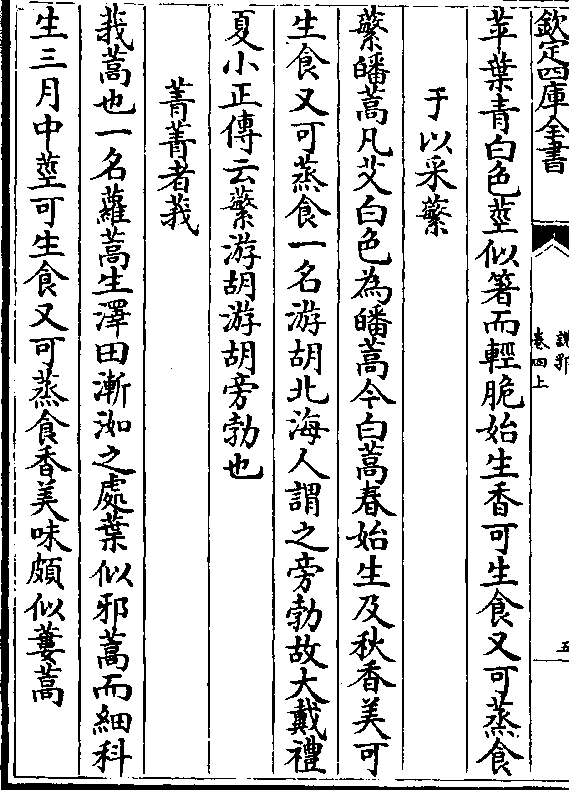 欽定四庫全書
説郛
卷四上
五
苹葉青白色莖似箸而輕脆始生香可生食又可蒸食
于以采蘩
蘩皤蒿凡艾白色為皤蒿今白蒿春始生及秋香美可
生食又可蒸食一名游胡北海人謂之旁勃故大戴禮
夏小正傳云蘩游胡游胡旁勃也
菁菁者莪
莪蒿也一名蘿蒿生澤田漸洳之處葉似邪蒿而細科
生三月中莖可生食又可蒸食香美味頗似蔞蒿